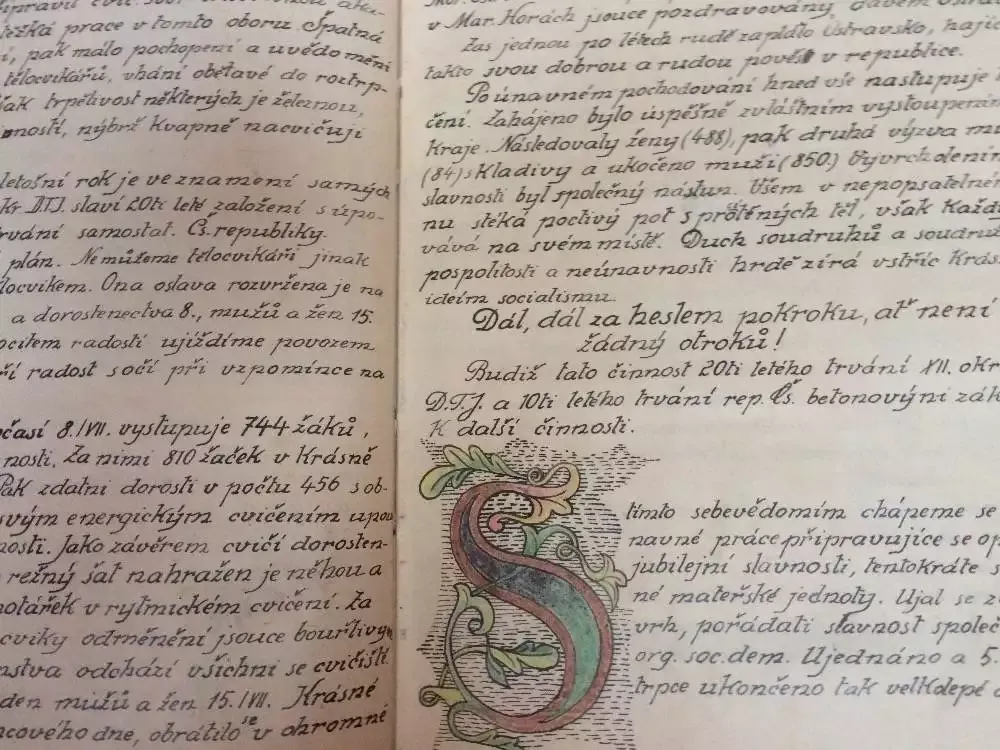 připravil cvič.
těžká práce v tomto oboru. Špatná
pak málo pochopení a uvědomění
tělocvikářů, vhání obětavé do roztrp-
však trpělivost některých je železnou,
nýbrž kvapně nacvičují
letošní rok je ve znamení samých
D.T.J. slaví 20ti leté založení s úpo-
trvání samostat. Čs. republiky.
plán. Nemůžeme tělocvikáři jinak
tělocvikem. Ona oslava rozvržena je na
a dorostenectva 8., mužů a žen 15.
pocitem radosti ujíždíme povozem
radost sočí při vzpomínce na
8./VII. vystupuje 744 žáků,
nosti. Za nimi 810 žaček v Krásné
Pak zdatní dorosti v počtu 456 s ob-
svým energickým cvičením upou
nosti. Jako závěrem cvičí dorosten-
režný šat nahražen je něhou a
v rytmickém cvičení. Za
cviky odměnění jsouce bouřlivým
odchází všichni se cvičiště.
den mužů a žen 15./VII. Krásné
dne, obrátilo se v ohromné
v Mar. Horách jsouce pozdravovány davem
Zas jednou po létech rudě zaplálo Ostravsko, hajíc
takto svou dobrou a rudou pověst v republice.
Po únavném pochodování hned vše nastupuje
čení. Zahájeno bylo úspěšně zvláštním vystoupením
Kraje. Následovaly ženy (488), pak druhá výzva
(84) s Kladivy a ukočeno muži (850.) Vyvrcholením
slavnosti byl společný nástup. Všem v nepopsatelném
nu stéká poctivý pot s prötěných těl, však Každ
vává na svém místě. Duch soudruhů a soudru
pospolitosti a neúnavnosti hrdě zírá vstříc Krás
ideím socialismu.
Dál, dál za heslem pokroku, ať není
žádný otroků!
Budiž tato činnost 20ti letého trvání XII. okr
D.T.J. a 10ti letého trvání rep. Čs. betonovými zák
K další činnosti.
S tímto sebevědomím chápeme se
navné práce připravujíce se op
jubilejní slavnosti, tentokráte s
né mateřské jednoty. Ujal se
vrh, pořádati slavnost společ
org. soc. dem. Ujednáno a 5.
trpce ukončeno tak velkolepé